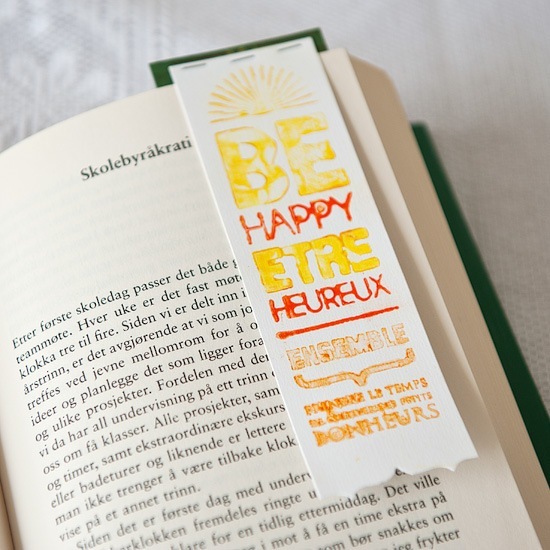 Skolebyråkrati
Etter første skoledag passer det både
teammøte. Hver uke er det fast
klokka tre til fire. Siden vi er delt inn i
årstrinn, er det avgjørende at vi som
treffes ved jevne mellomrom for å
ideer og planlegge det som ligger
og ulike prosjekter. Fordelen med
vi da har all undervisning på ett trinn
oss om få klasser. Alle prosjekter,
og timer, samt ekstraordinære
eller badeturer og liknende er lettere
man ikke trenger å være tilbake
vise på et annet trinn.
Siden det er første dag med
fremdeles ringte
klare for en tidlig ettermiddag. Det ville
i mot å få en time ekstra på
som bør snakkes om
jeg frykter
BE
HAPPY
ETRE
HEUREUX
ENSEMBLE
PRENDRE LE TEMPS
PETITS
BONHEURS